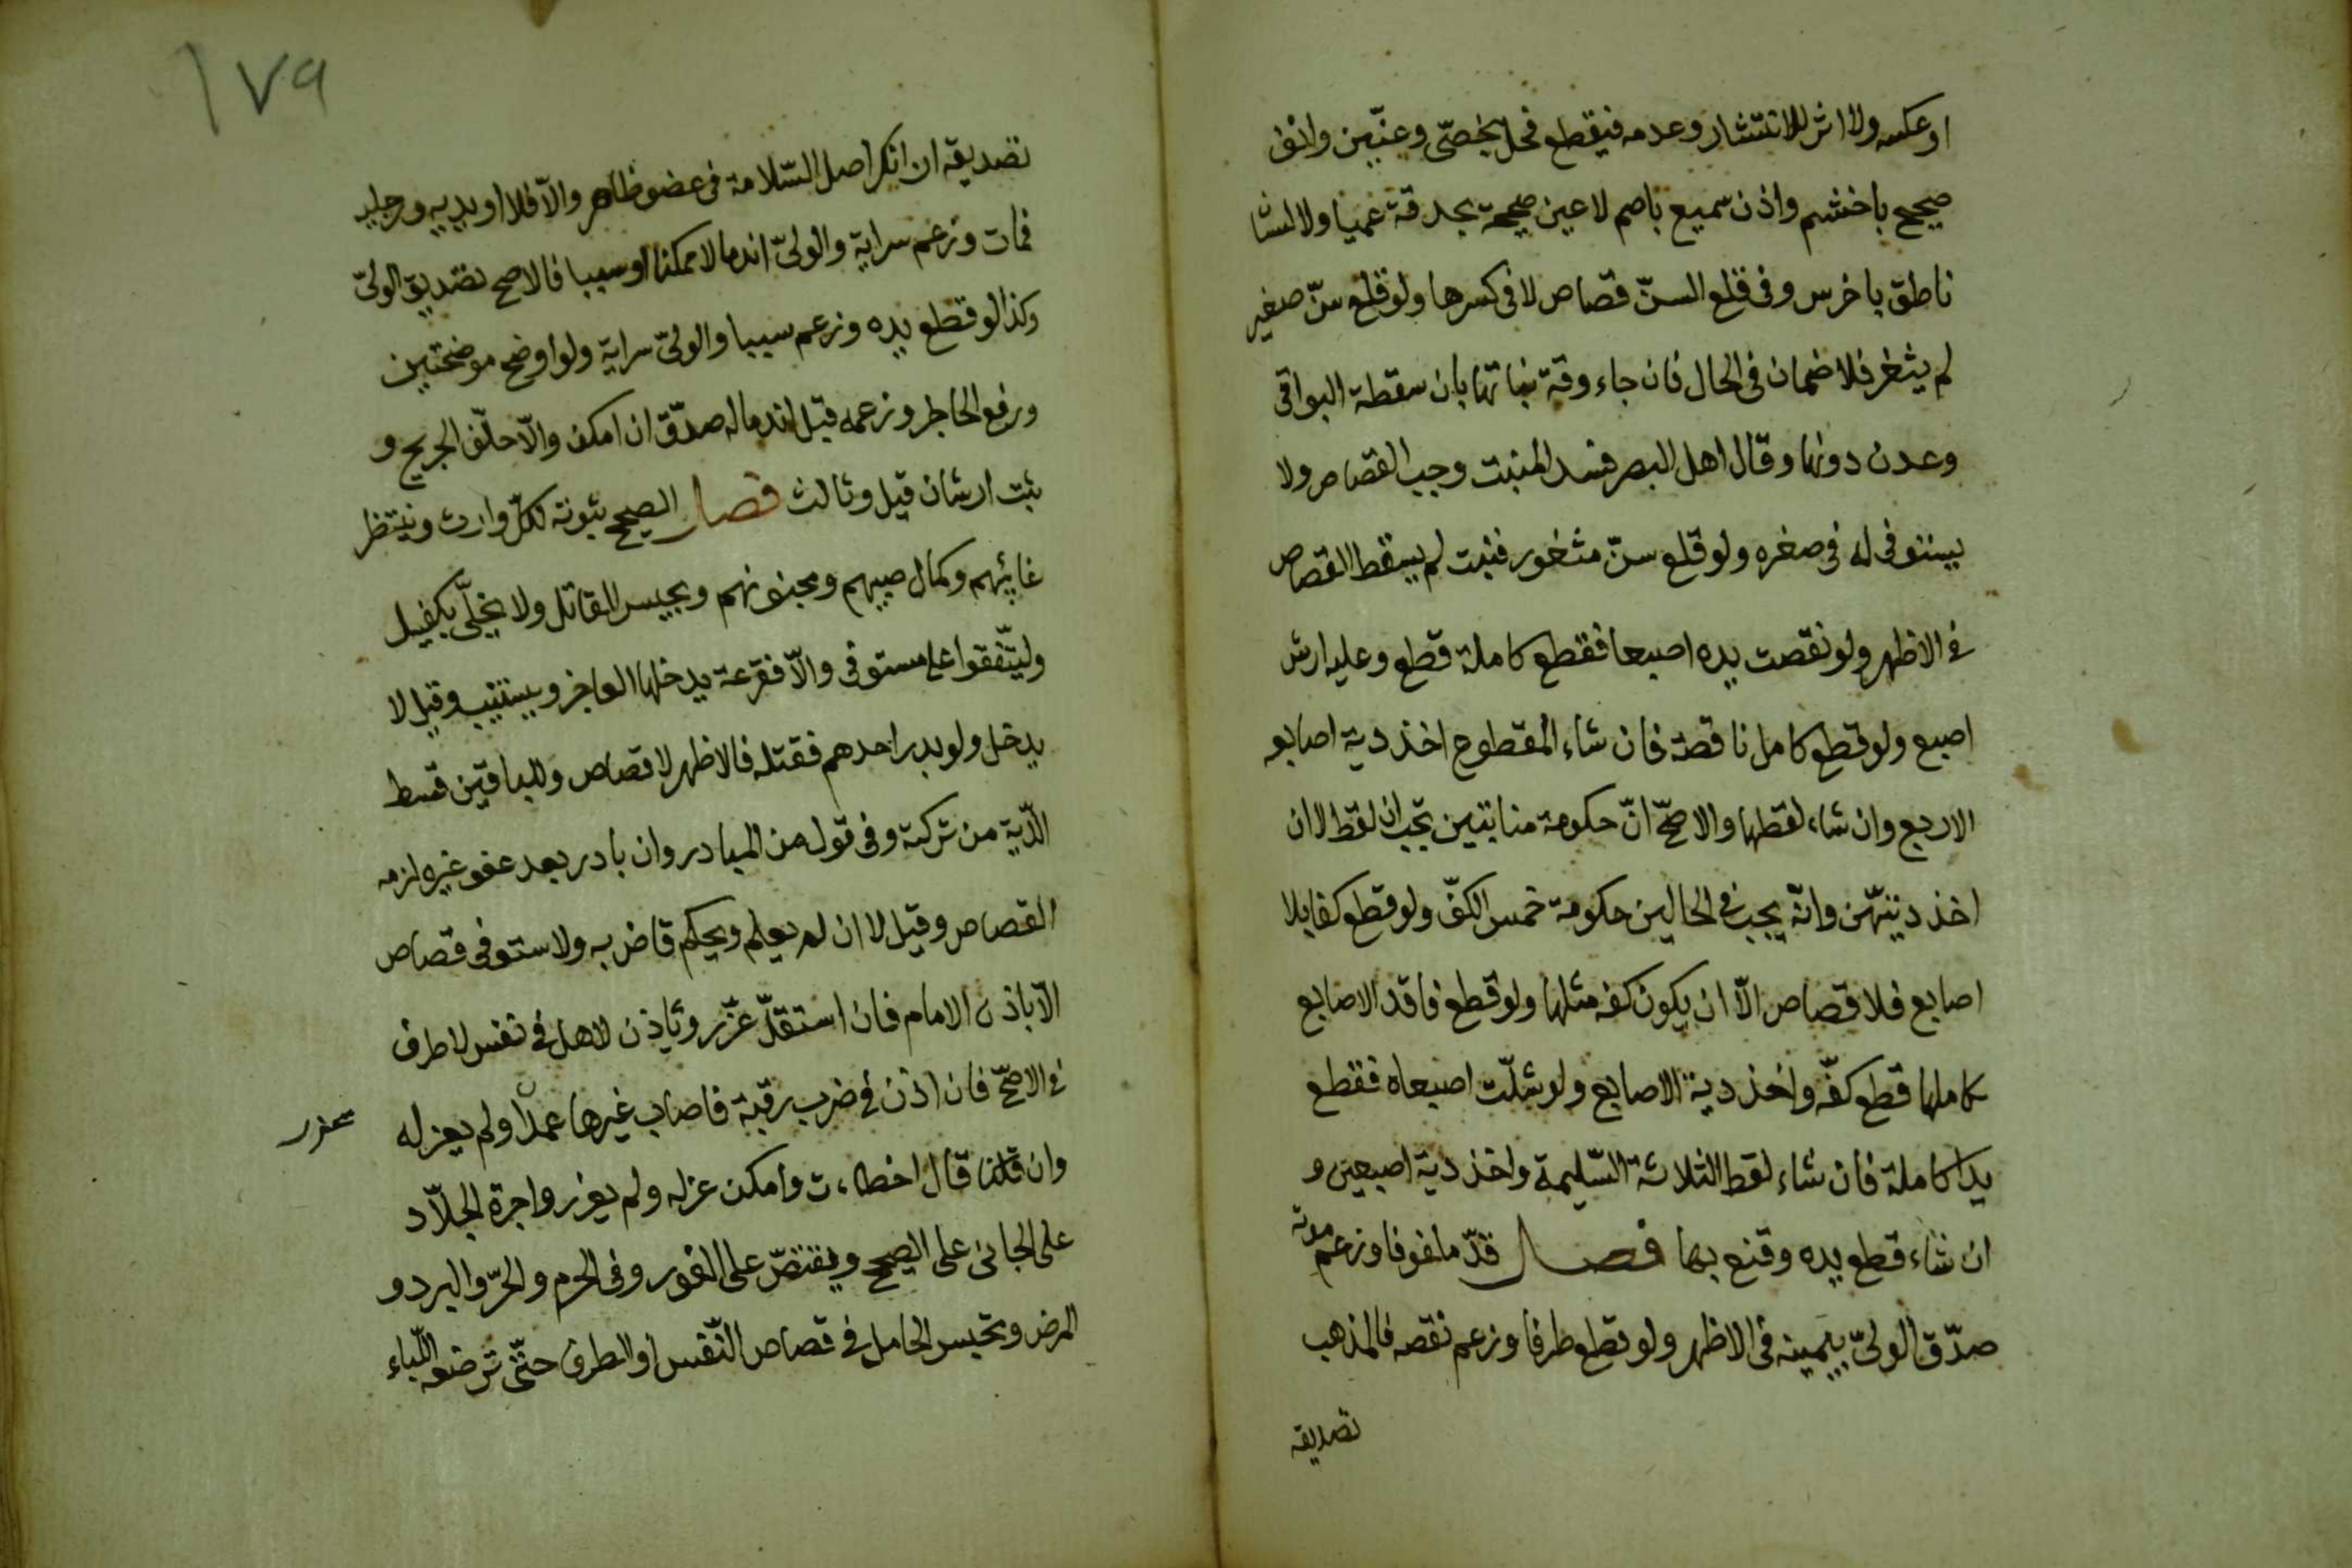 او عكسه ولا اثر للانتشار وعدمه فيقطع فحل بخصّى وعنّين وانف
صحيح باخشم واذن سميع باصم لا عين صحيحة بحدقة عميا ولا لسان
ناطق باخرس وفى قلع السنّ قصاص لا فى كسرها ولو قلع سنّ صغير
لم يثغر فلا ضمان فى الحال فان جاء وقة نباتها بان سقطة البواقى
وعدن دونها وقال اهل البصر فسد المنبت وجب القصاص ولا
يستوفى له فى صغره ولو قلع سنّ مثغور فنبت لم يسقط القصاص
فى الاظهر ولو نقصت يده اصبعا فقطع كاملة قطع وعليه ارش
اصبع ولو قطع كامل ناقصة فان شاء المقطوع اخذ دية اصابعه
الاربع وان شاء لقطها والاصحّ انّ حكومة منابتين تجب ان لقط لا ان
اخذ ديتهّن وانّه يجب فى الحالين حكومة خمس الكفّ ولو قطع كفا بلا
اصابع فلا قصاص الّا ان يكون كفه مثلها ولو قطع فاقد الاصابع
كاملها قطع كفّه واخذ دية الاصابع ولو شلّت اصبعاه فقطع
يدا كاملة فان شاء لقط الثلاثة السّليمة واخذ دية اصبعين و
ان شاء قطع يده وقنع بها فصل قدّ ملفوفا وزعم موته
صدّق الولىّ بيمينه فى الاظهر ولو قطع طرفا وزعم نقصه فالمذهب
تصديقه
١٧٩
تصديقه ان انكر اصل السّلامة فى عضو ظاهر والّا فلا او يديه ورجليه
فمات وزعم سراية والولىّ اندمالا ممكنا او سببا فالاصح تصديق الولىّ
وكذا لو قطع يده وزعم سببا والولىّ سراية ولو اوضح موضحتين
ورفع الحاجز وزعمه قبل اندماله صدّق ان امكن والّا حلّف الجريح و
ثبت ارشان قيل وثالث فصل الصحيح ثبوته لكلّ وارث وينتظر
غائبهم وكمال صبيهم ومجنونهم ويحبس القاتل ولا يخلّى بكفيل
وليتّفقوا على مستوفى والّا فقرعة يدخلها العاجز ويستنيب وقيل لا
يدخل ولو بدر احدهم فقتله فالاظهر لا قصاص وللباقين قسط
الدّية من تركته وفى قول من المبادر وان بادر بعد عفو غيره لزمه
القصاص وقيل لا ان لم يعلم ويحكم قاض به ولا يستوفى قصاص
الّا باذن الامام فان استقلّ عزّر وياذن لاهل فى نفس لا طرف
فى الاصحّ فان اذن فى ضرب رقبة فاصاب غيرها عمدًا ولم يعزله
وان قال اخطاءت وامكن عزله ولم يعزر واجرة الجلّاد
على الجانى على الصحيح ويقتصّ على الفور وفى الحرم والحرّ والبرد و
المرض وتحبس الحامل فى قصاص النّفس او الطرف حتّى ترضعه اللّباء